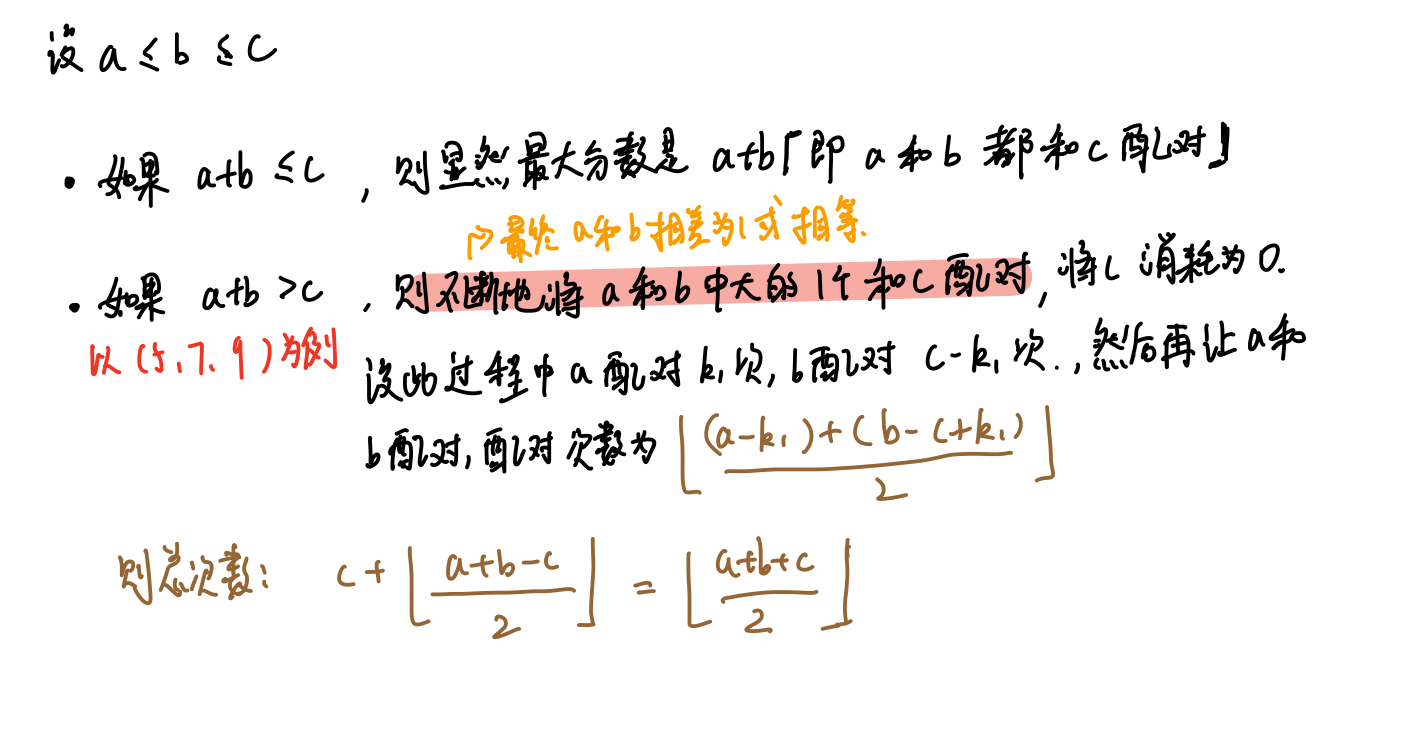 设 a ≤ b ≤ c
• 如果 a+b ≤ c , 则显然最大分数是 a+b「即 a 和 b 都和 c 配对」
↱ 最终 a 和 b 相差为 1 或 相等.
• 如果 a+b > c , 则不断地将 a 和 b 中大的 1个 和 c 配对, 将 c 消耗为 0.
以 (5, 7, 9) 为例
设此过程中 a 配对 k₁ 次, b 配对 c-k₁ 次., 然后再让 a 和
b 配对, 配对次数为 ⌊((a-k₁)+(b-c+k₁))/2⌋
则总次数: c + ⌊(a+b-c)/2⌋ = ⌊(a+b+c)/2⌋